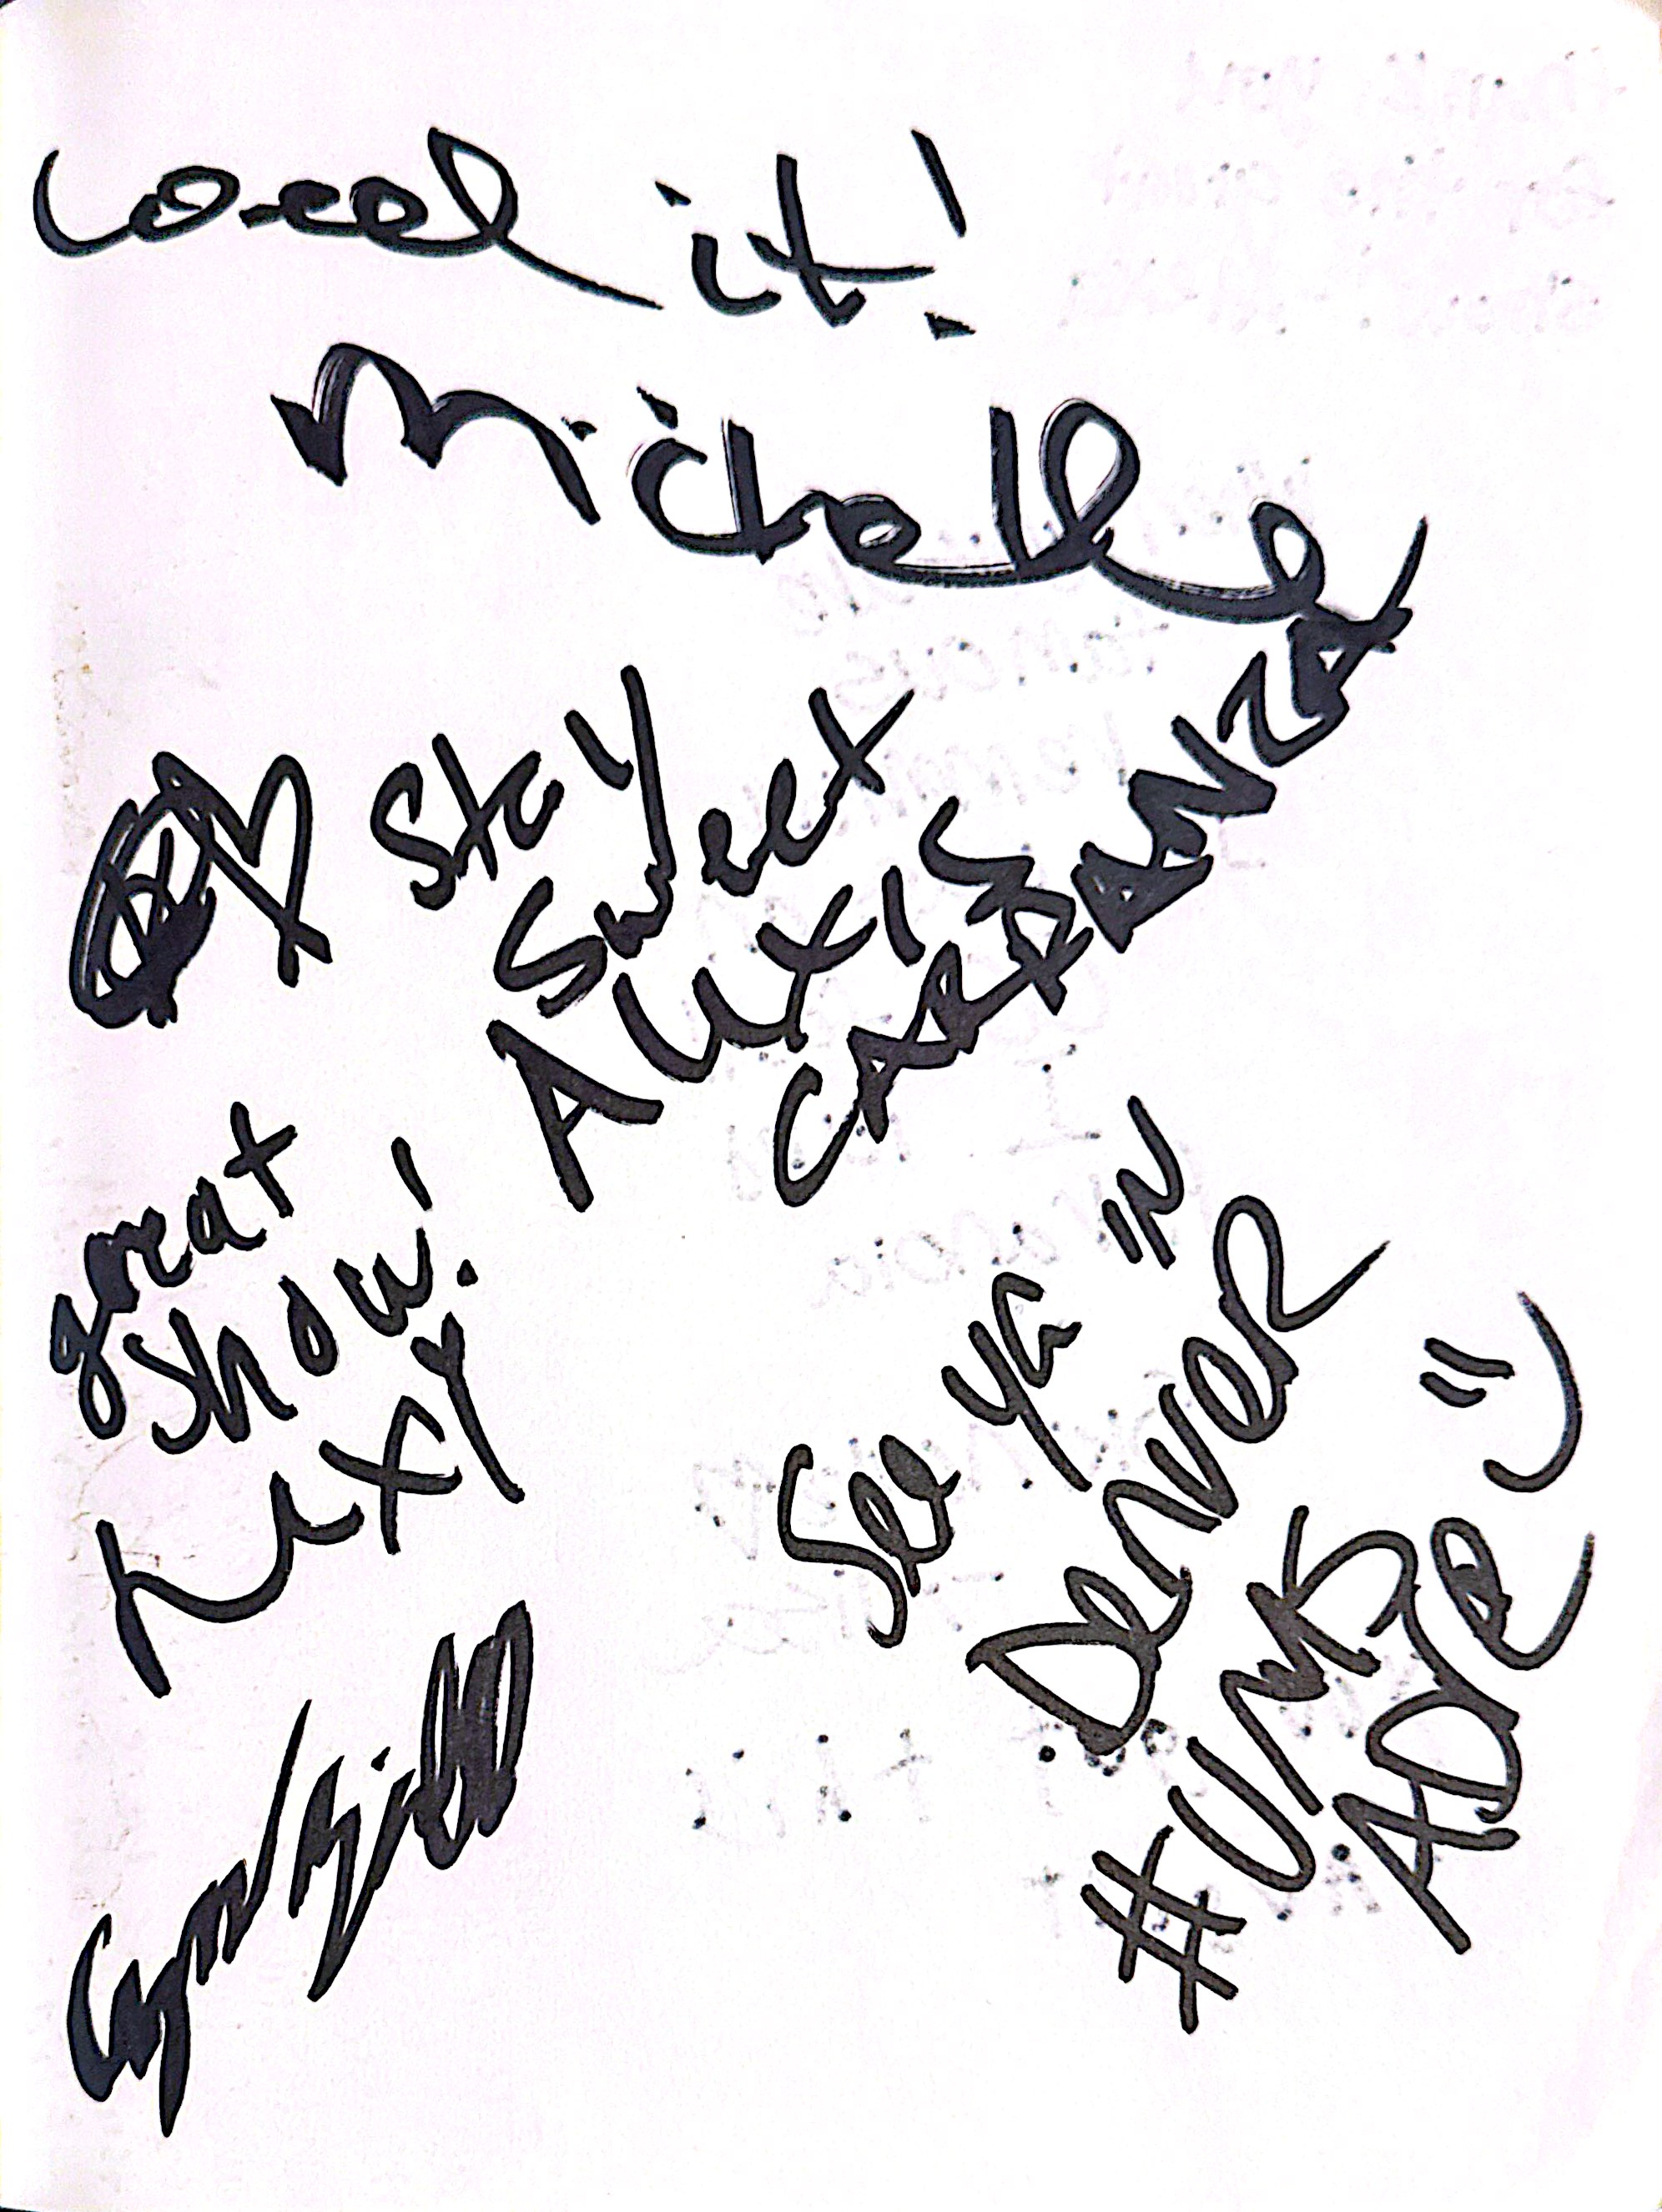 Loved it!
Michelle
Stay
Sweet
Alexis
CARRANZA
great
show!
Lexy
See ya IN
Denver
#UMS
ADRe